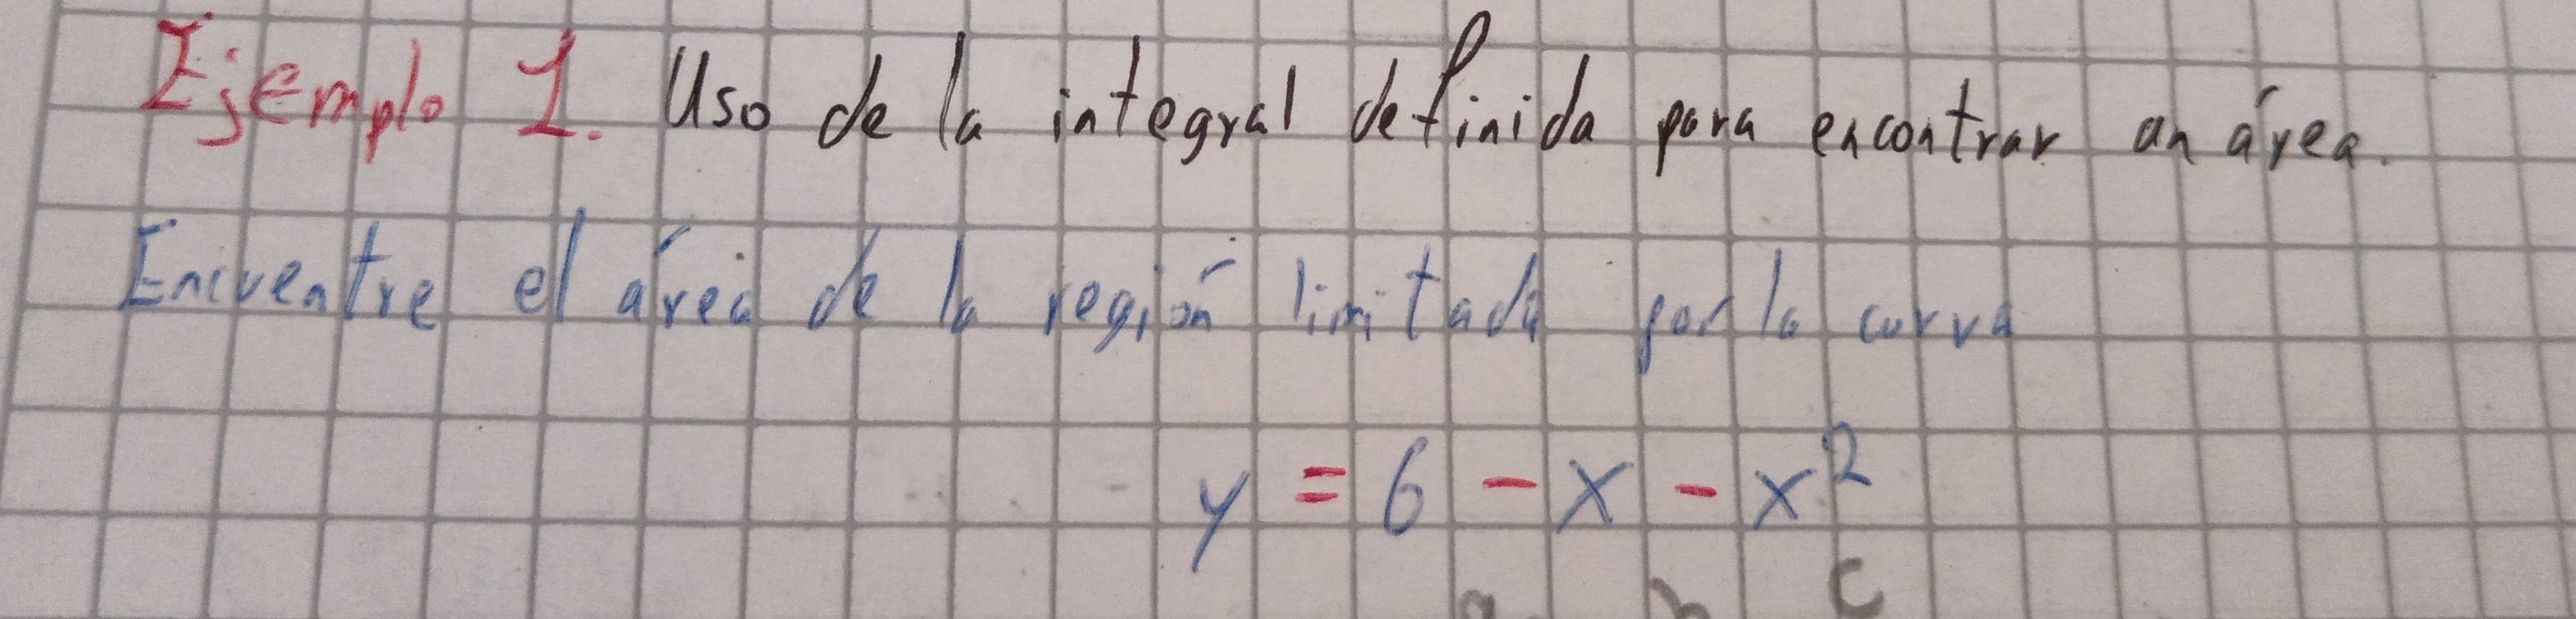 Ejemplo 1. Uso de la integral definida para encontrar an área.
Encuentre el área de la región limitada por la curva
y = 6 - x - x²
a b c